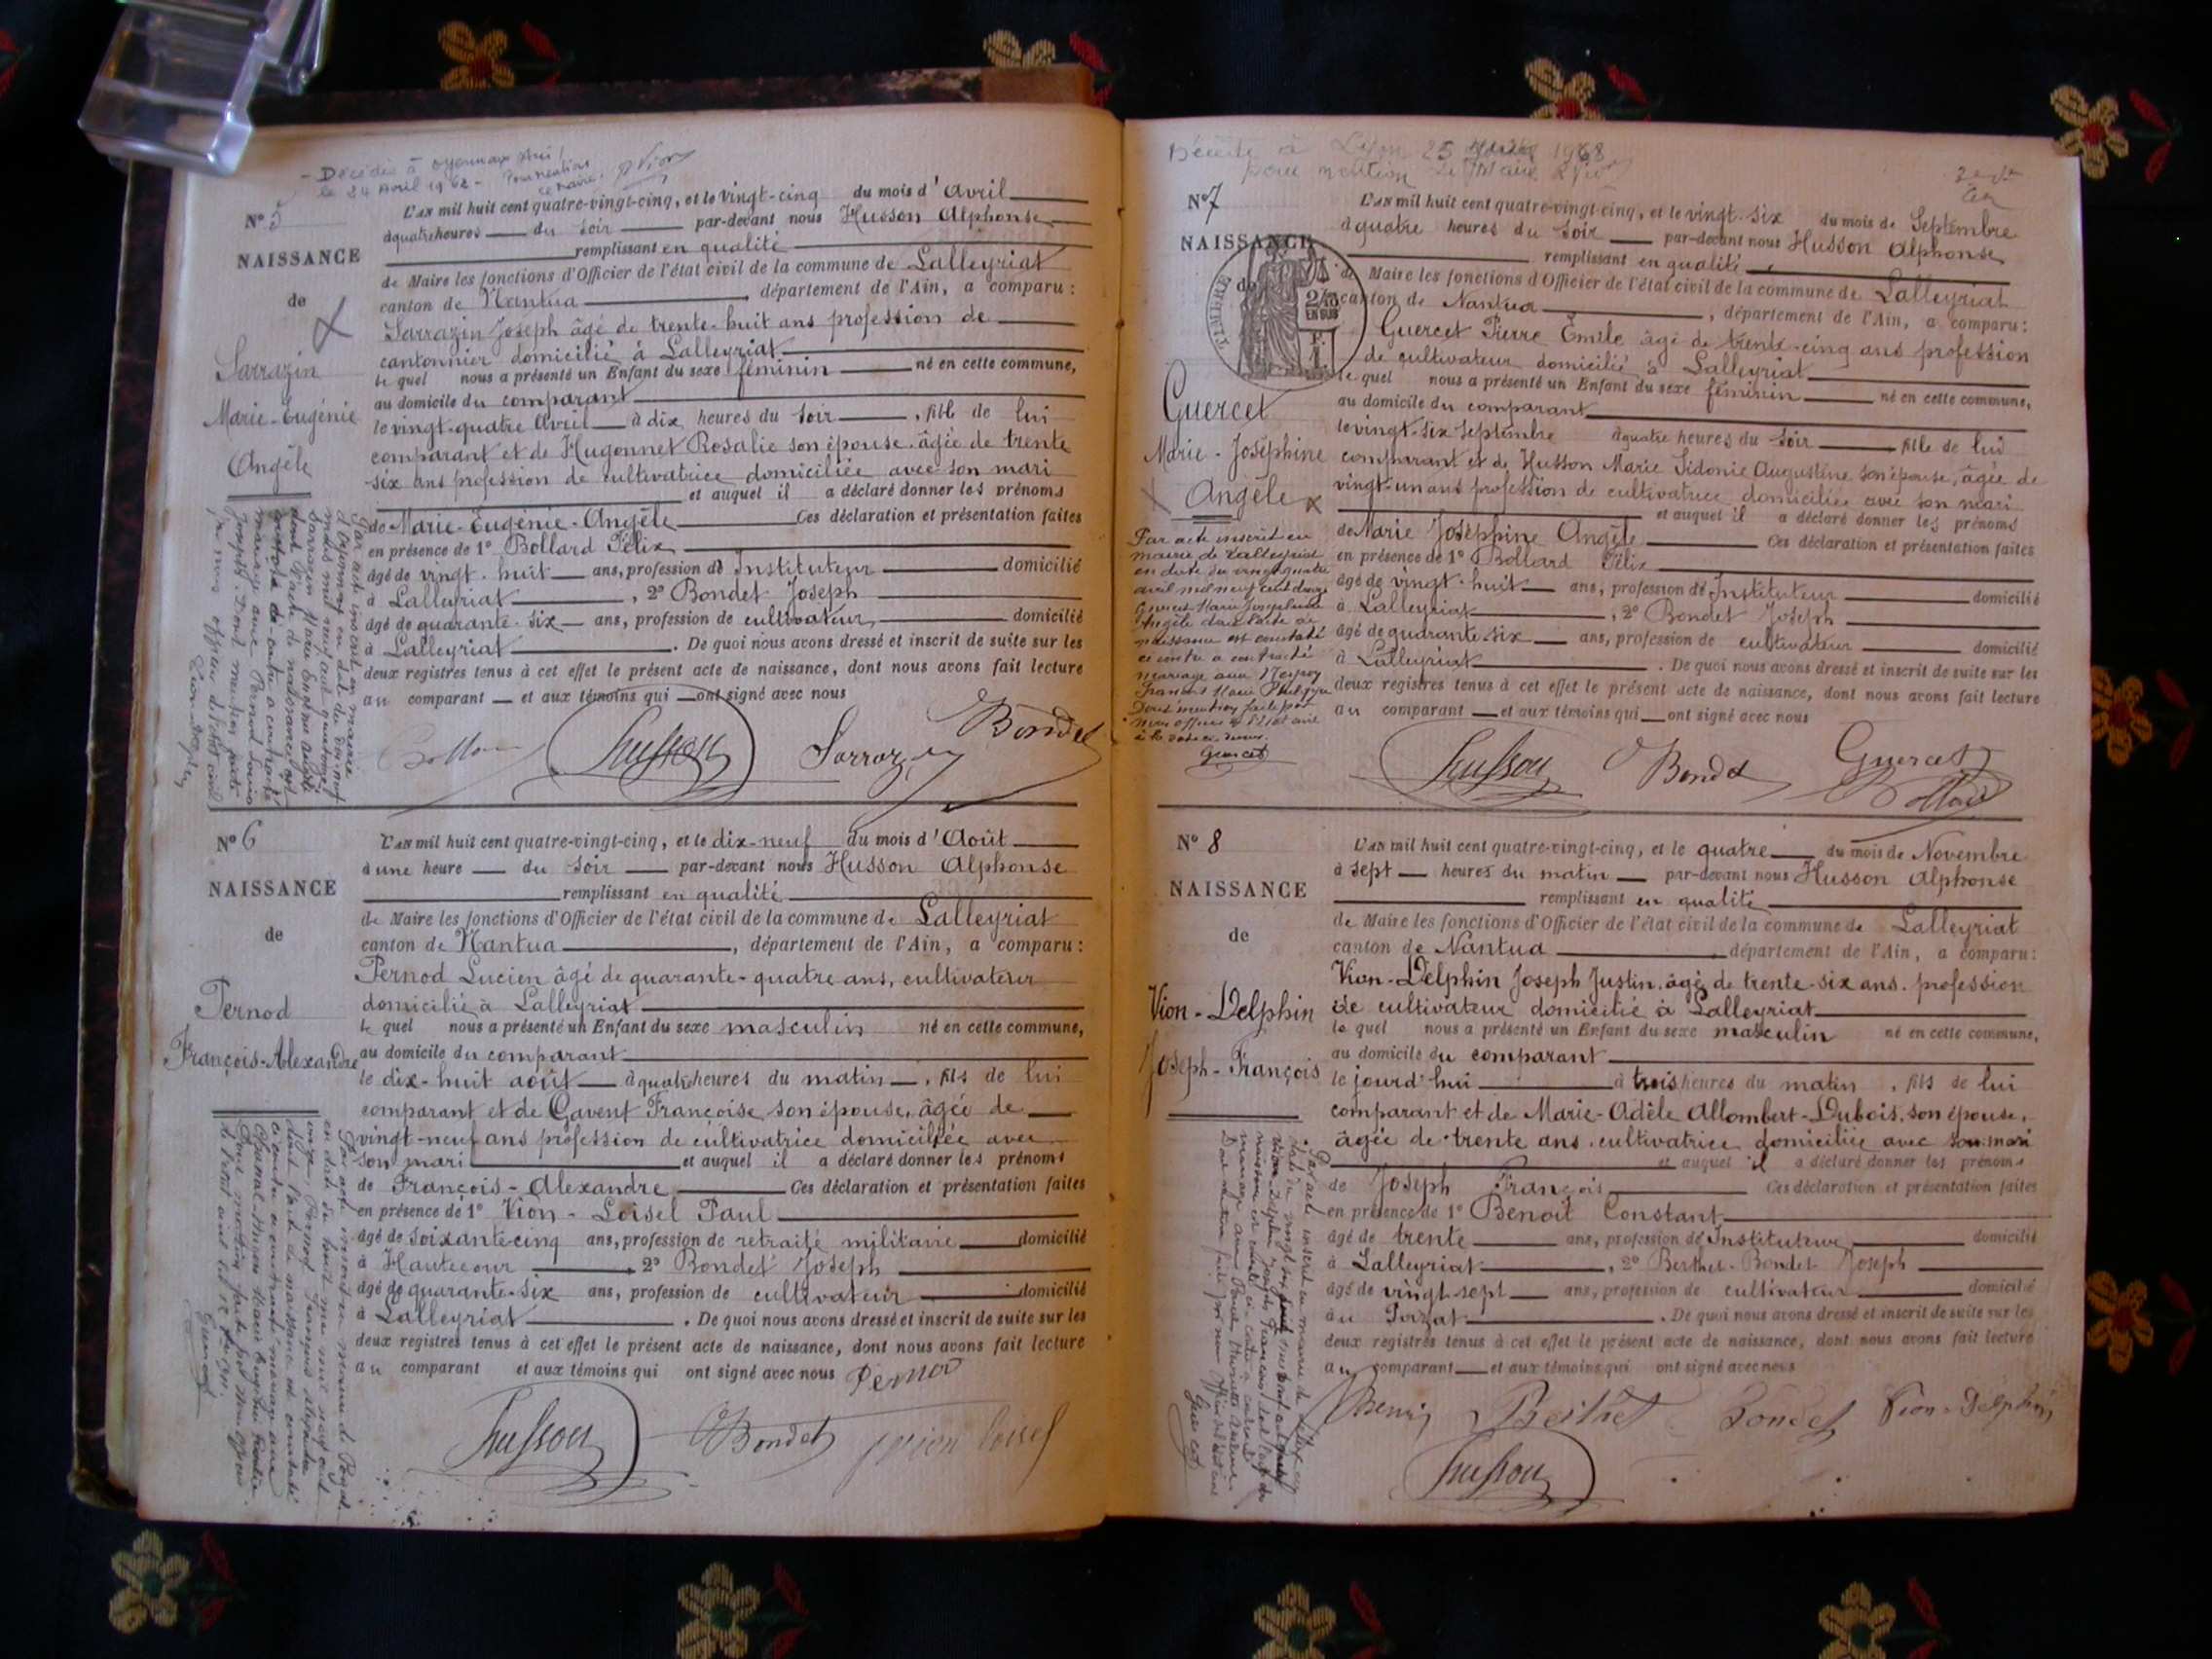 - Décédée à Oyonnax
le 24 Avril 1962 - Pour mention
Le Maire,
N° 5
NAISSANCE
de
Sarrazin
Marie-Eugénie
Angèle
L'AN mil huit cent quatre-vingt-cinq, et le vingt-cinq du mois d'Avril
à quatre heures du soir par-devant nous Husson Alphonse
remplissant en qualité
de Maire les fonctions d'Officier de l'état civil de la commune de Lalleyriat
canton de Nantua, département de l'Ain, a comparu :
Sarrazin Joseph âgé de trente-huit ans profession de
cantonnier domicilié à Lalleyriat
le quel nous a présenté un Enfant du sexe féminin né en cette commune,
au domicile du comparant
le vingt-quatre Avril à dix heures du soir, fille de lui
comparant et de Hugonnet Rosalie son épouse âgée de trente
-six ans profession de cultivatrice domiciliée avec son mari
et auquel il a déclaré donner les prénoms
de Marie-Eugénie-Angèle Ces déclaration et présentation faites
en présence de 1° Bollard Félix
âgé de vingt-huit ans, profession de Instituteur domicilié
à Lalleyriat, 2° Bondet Joseph
âgé de quarante-six ans, profession de cultivateur domicilié
à Lalleyriat. De quoi nous avons dressé et inscrit de suite sur les
deux registres tenus à cet effet le présent acte de naissance, dont nous avons fait lecture
au comparant et aux témoins qui ont signé avec nous
Husson Sarrazin Bondet
N° 6
NAISSANCE
de
Pernod
François-Alexandre
L'AN mil huit cent quatre-vingt-cinq, et le dix-neuf du mois d'Août
à une heure du soir par-devant nous Husson Alphonse
remplissant en qualité
de Maire les fonctions d'Officier de l'état civil de la commune de Lalleyriat
canton de Nantua, département de l'Ain, a comparu :
Pernod Lucien âgé de quarante-quatre ans, cultivateur
domicilié à Lalleyriat
le quel nous a présenté un Enfant du sexe masculin né en cette commune,
au domicile du comparant
le dix-huit août à quatre heures du matin, fils de lui
comparant et de Gavent Françoise son épouse, âgée de
vingt-neuf ans profession de cultivatrice domiciliée avec
son mari et auquel il a déclaré donner les prénoms
de François-Alexandre Ces déclaration et présentation faites
en présence de 1° Vion-Loisel Paul
âgé de soixante-cinq ans, profession de retraité militaire domicilié
à Hautecour, 2° Bondet Joseph
âgé de quarante-six ans, profession de cultivateur domicilié
à Lalleyriat. De quoi nous avons dressé et inscrit de suite sur les
deux registres tenus à cet effet le présent acte de naissance, dont nous avons fait lecture
au comparant et aux témoins qui ont signé avec nous Pernod
Husson Bondet Vion Loisel
Décédée à Lyon 25 1968
pour mention Le Maire
N° 7
NAISSANCE
de
2/10
EN SUS
Guercet
Marie-Joséphine
Angèle
Par acte inscrit en
mairie de Lalleyriat
en date du vingt quatre
avril mil neuf cent douze
Guercet Marie Joséphine
Angèle dont l'acte de
naissance est constaté
ci contre a contracté
mariage avec
François Marie
Dont mention faite par
nous officier de l'état civil
Guercet
L'AN mil huit cent quatre-vingt-cinq, et le vingt-six du mois de Septembre
à quatre heures du soir par-devant nous Husson Alphonse
remplissant en qualité
de Maire les fonctions d'Officier de l'état civil de la commune de Lalleyriat
canton de Nantua, département de l'Ain, a comparu :
Guercet Pierre Emile âgé de trente-cinq ans profession
de cultivateur domicilié à Lalleyriat
le quel nous a présenté un Enfant du sexe féminin né en cette commune,
au domicile du comparant
le vingt-six septembre à quatre heures du soir fille de lui
comparant et de Husson Marie Sidonie Augustine son épouse, âgée de
vingt-un ans profession de cultivatrice domiciliée avec son mari
et auquel il a déclaré donner les prénoms
de Marie Joséphine Angèle Ces déclaration et présentation faites
en présence de 1° Bollard Félix
âgé de vingt-huit ans, profession de Instituteur domicilié
à Lalleyriat, 2° Bondet Joseph
âgé de quarante-six ans, profession de cultivateur domicilié
à Lalleyriat. De quoi nous avons dressé et inscrit de suite sur les
deux registres tenus à cet effet le présent acte de naissance, dont nous avons fait lecture
au comparant et aux témoins qui ont signé avec nous
Husson Bondet Guercet Bollard
N° 8
NAISSANCE
de
Vion-Delphin
Joseph-François
L'AN mil huit cent quatre-vingt-cinq, et le quatre du mois de Novembre
à sept heures du matin par-devant nous Husson Alphonse
remplissant en qualité
de Maire les fonctions d'Officier de l'état civil de la commune de Lalleyriat
canton de Nantua département de l'Ain, a comparu :
Vion-Delphin Joseph Justin, âgé de trente-six ans, profession
de cultivateur domicilié à Lalleyriat
le quel nous a présenté un Enfant du sexe masculin né en cette commune,
au domicile du comparant
le jourd'hui à trois heures du matin, fils de lui
comparant et de Marie-Adèle Allombert-Dubois, son épouse,
âgée de trente ans, cultivatrice domiciliée avec son mari
et auquel il a déclaré donner les prénoms
de Joseph François Ces déclaration et présentation faites
en présence de 1° Benoit Constant
âgé de trente ans, profession de Instituteur domicilié
à Lalleyriat, 2° Berthet-Bondet Joseph
âgé de vingt-sept ans, profession de cultivateur domicilié
au Poizat. De quoi nous avons dressé et inscrit de suite sur les
deux registres tenus à cet effet le présent acte de naissance, dont nous avons fait lecture
au comparant et aux témoins qui ont signé avec nous
Berthet Bondet Vion-Delphin
Husson